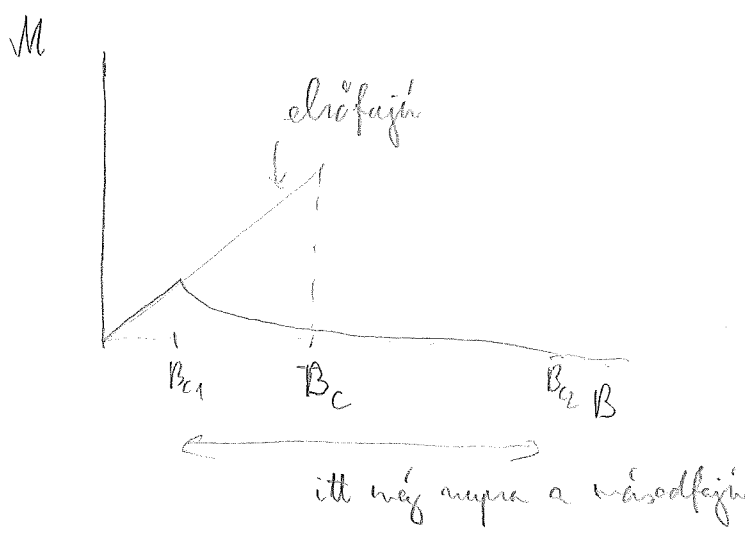 M
elsőfajú
B_{c1} B_c B_{c2} B
itt még szupra a másodfajú